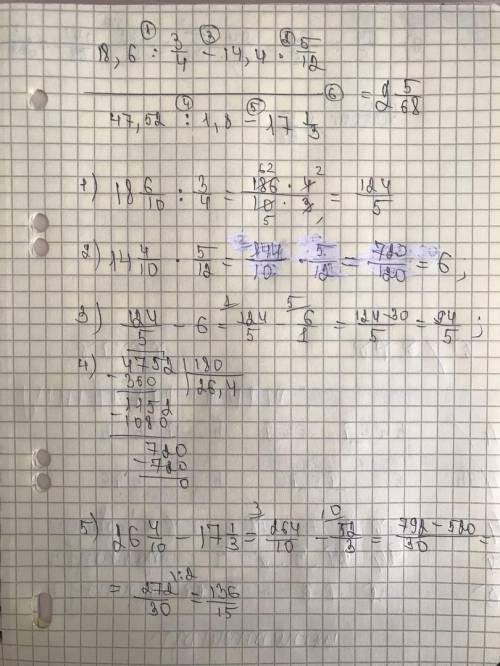 ① ③ ②
18,6 : 3/4 - 14,4 · 5/12
⑥ = 2 5/68
④ ⑤
47,52 : 1,8 - 17 1/3
1) 18 6/10 : 3/4 = 186 · 4 / 10 · 3 = 124/5
62 2
5 1
2) 14 4/10 · 5/12 = 144/10 · 5/12 = 720/120 = 6,
3) 124/5 - 6 = 124/5 - 6/1 = 124-30/5 = 94/5 ;
1 5
4) 4752 | 180
- 360 | 26,4
1152
- 1080
720
- 720
0
5) 26 4/10 - 17 1/3 = 264/10 - 52/3 = 792 - 520/30 =
3 10
= 272/30 = 136/15
1:2